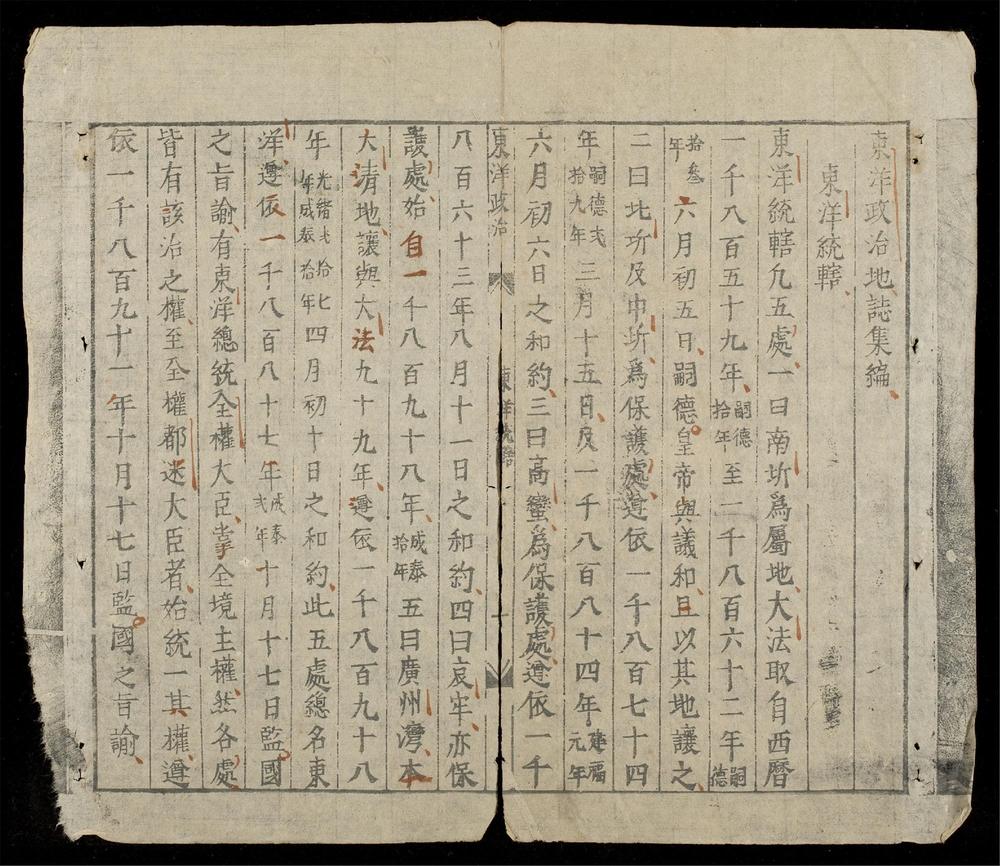 東洋政治地誌集編
東洋統轄
東洋統轄凢五處一曰南圻爲屬地大法取自西曆
一千八百五十九年嗣德拾年至一千八百六十二年嗣德
拾叁年六月初五日嗣德皇帝與議和且以其地讓之
二曰北圻及中圻爲保護處遵依一千八百七十四
年嗣德弍拾九年三月十五日及一千八百八十四年建福元年
六月初六日之和約三曰高蠻爲保護處遵依一千
東洋政治 東洋統轄 一
八百六十三年八月十一日之和約四曰哀牢亦保
護處始自一千八百九十八年成泰拾年五曰廣州灣本
大清地讓與大法九十九年遵依一千八百九十八
年光緒弍拾七年成泰拾年四月初十日之和約此五處總名東
洋遵依一千八百八十七年成泰弍年十月十七日監國
之旨諭有東洋總統全權大臣掌全境主權然各處
皆有該治之權至全權都迷大臣者始統一其權遵
依一千八百九十一年十月十七日監國之旨諭